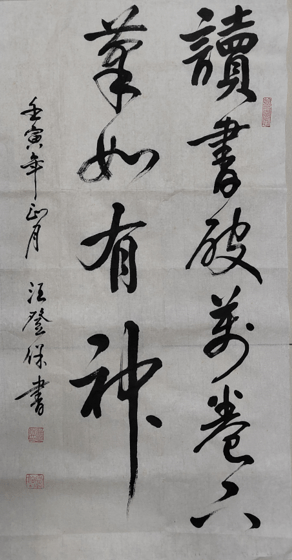 讀書破萬卷下
筆如有神
壬寅年正月 汪登保書